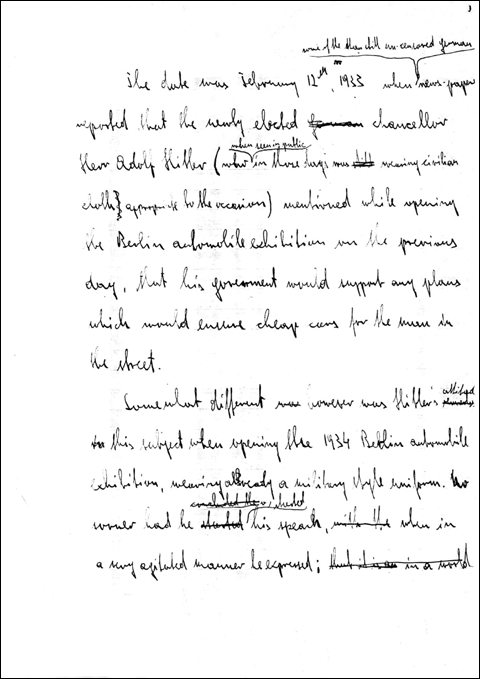 1
some of the then still un-censored german
The date was February 12th, 1933 when news-paper
reported that the newly elected german chancellor
when seen in public
Herr Adolf Hitler (who in those days was still wearing civilian
cloth} appropriate to the occasion) mentioned while opening
the Berlin automobile exhibition on the previous
day, that his government would support any plans
which would ensure cheap cars for the man in
the street.
Somewhat different however was Hitler's
attitude
on this subject when opening the 1934 Berlin automobile
exhibition, wearing already a military style uniform. No
started
sooner had he started his speach, with the when in
a very agitated manner he expressed; that it is in a world